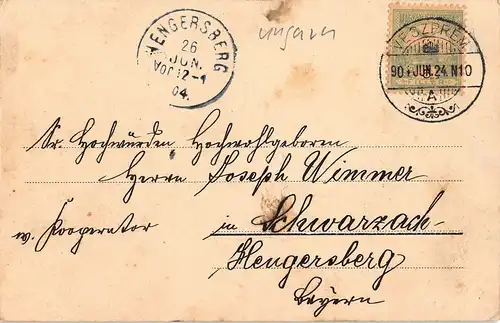 HENGERSBERG
26
JUN.
Vor 12-1
04.
Ungarn
VESZPRÉM
904 JUN. 24. N10
A
Sr. Hochwürden Hochwohlgeboren
Herrn Joseph Wimmer
w. Kooperator
in Schwarzach-
Hengersberg
Bayern